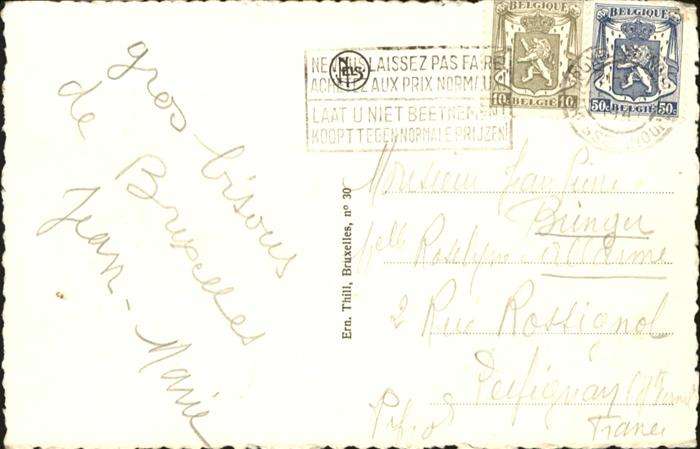 gros bisous
de Bruxelles
Jean-Marie
NE VOUS LAISSEZ PAS FAIRE
ACHETEZ AUX PRIX NORMAUX
LAAT U NIET BEETNEMEN
KOOPT TEGEN NORMALE PRIJZEN!
Nels
BELGIQUE
10c BELGIË 10c
BELGIQUE
50c BELGIË 50c
Ern. Thill, Bruxelles, n° 30
Monsieur Jean Pierre
Bunger
Melle Roselyne Allaume
2 Rue Rossignol
France